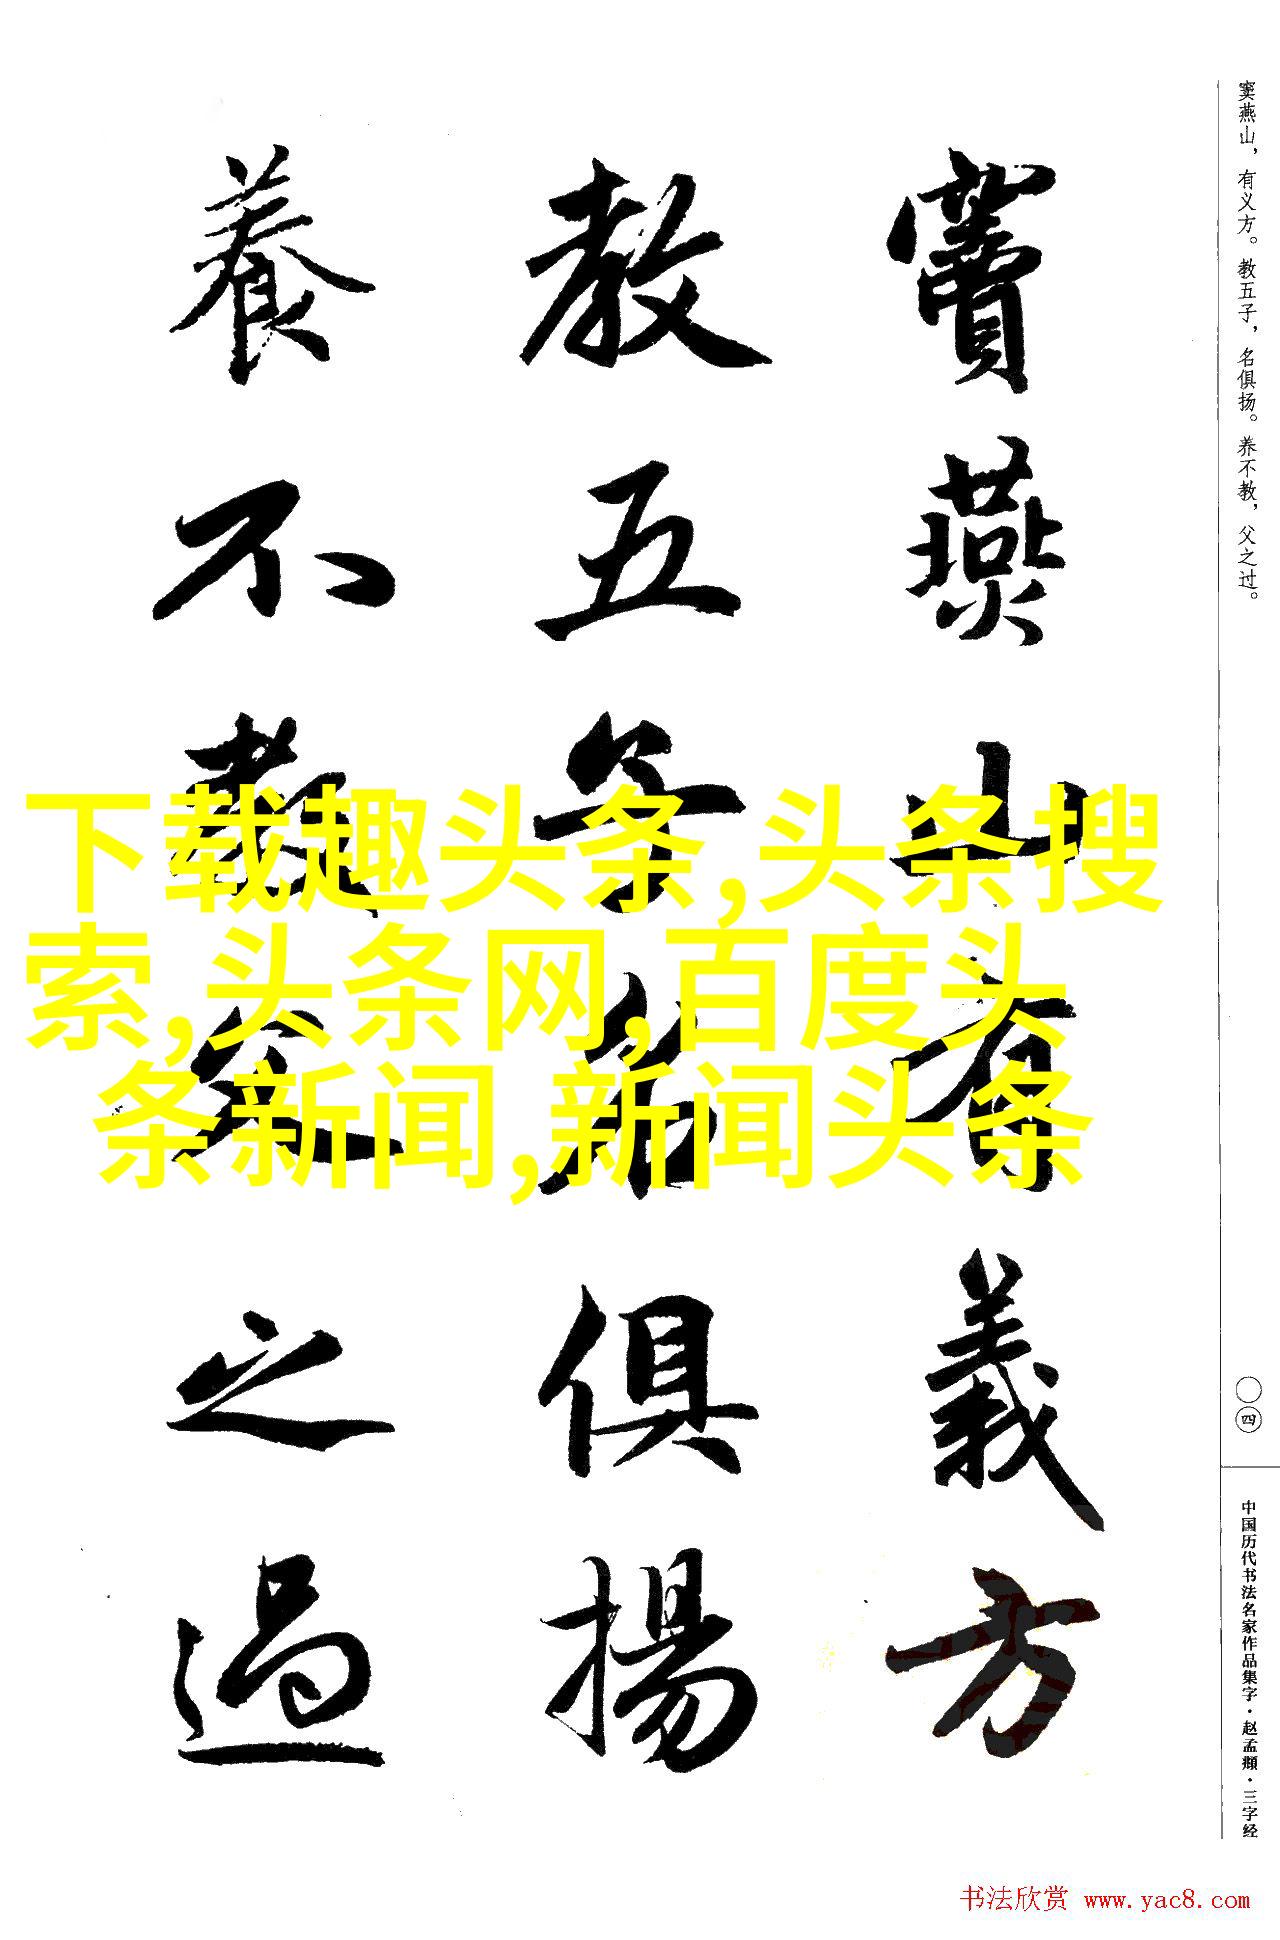 窦燕山，有义方。教五子，名俱扬。养不教，父之过。
竇燕山有義方
教五子名俱揚
養不教父之過
下载趣头条,头条搜
索,头条网,百度头
条新闻,新闻头条
四
中国历代书法名家作品集字·赵孟頫·三字经
书法欣赏 www.yac8.com